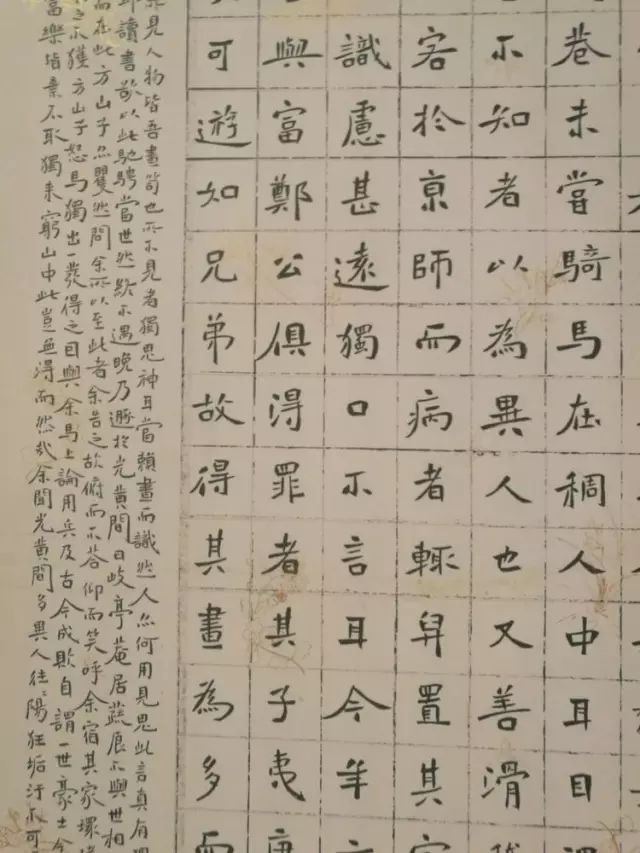 巷未當騎馬在稠人中耳目
不知者以為異人也又善滑
客於京師而病者輒舁置其
識慮甚遠獨口不言耳今年
與富鄭公俱得罪者其子夷
可遊如兄弟故得其畫為多
見人物皆吾畫笥也所不見者獨鬼神耳當賴畫而識然人亦何用見鬼此言真有
讀書欲以此馳騁當世然終不遇晚乃遯於光黃間曰岐亭菴居蔬食不與世相
而在此方山子亦矍然問余所以至此者余告之故俯而不答仰而笑呼余宿其家環
之不獲方山子怒馬獨出一發得之因與余馬上論用兵及古今成敗自謂一世豪士今
富樂皆棄不取獨来窮山中此豈無得而然哉余聞光黃間多異人往〻陽狂垢汙不可